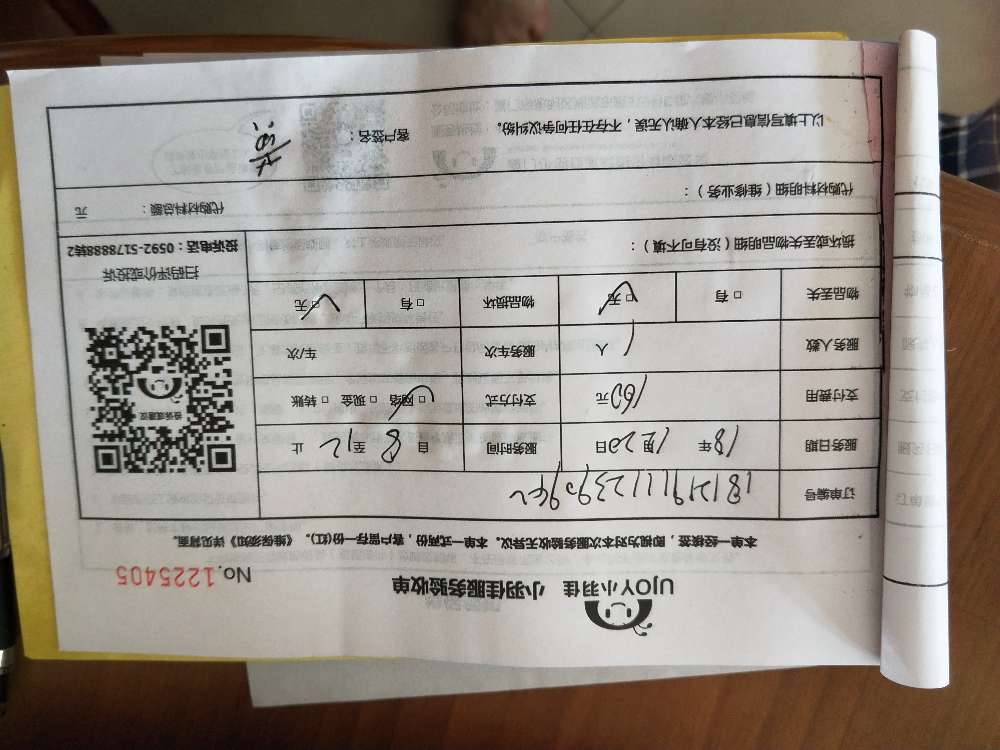 UJOY小羽佳 小羽佳服务验收单
No.1225405
本单一经核签，即视为对本次服务验收无异议。本单一式两份，客户留存一份(红)。《维保须知》详见背面。
订单编号
服务日期 18年 1月20日 服务时间 自 8 至 12 止
支付费用 160元 支付方式 □ 网络 □ 现金 □ 转账
服务人数 1 人 服务车次 车/次
物品丢失 □ 有 □ 无 物品损坏 □ 有 □ 无
扫码评价或投诉
投诉电话：0592-5178888转2
损坏或丢失物品明细（没有可不填）：
代购材料明细（维修业务）：
代购材料总额： 元
以上填写信息已经本人确认无误，不存在任何争议纠纷。
客户签名：